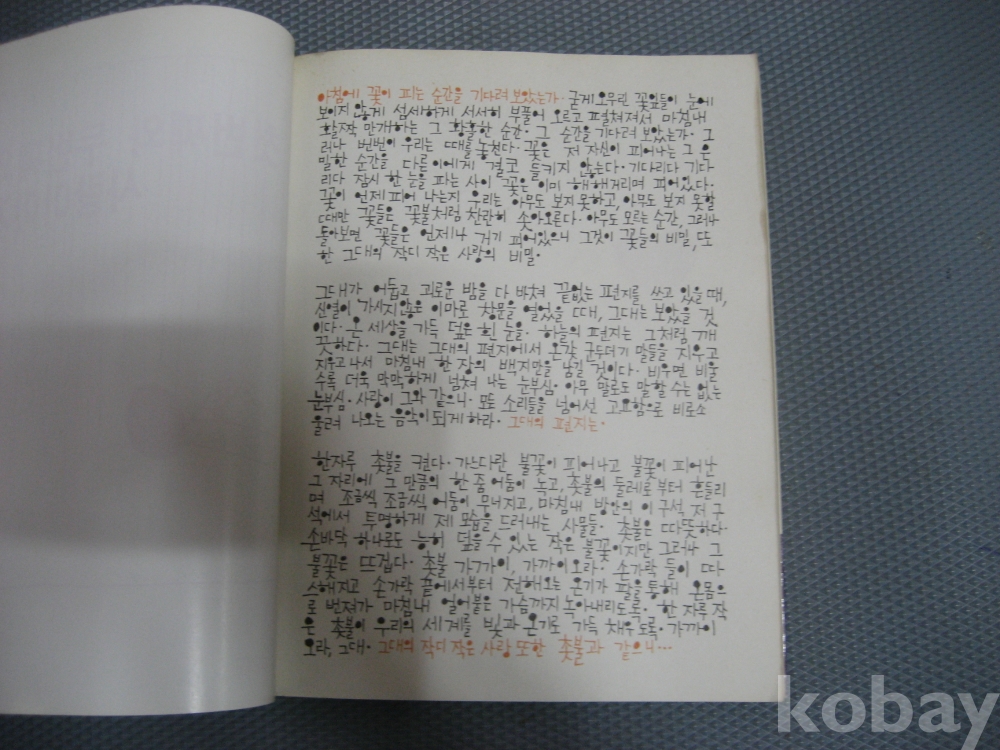 아침에 꽃이 피는 순간을 기다려 보았는가. 굳게 오무린 꽃잎들이 눈에
보이지 않게 섬세하게 서서히 부풀어 오르고 펼쳐져서 마침내
활짝 만개하는 그 황홀한 순간. 그 순간을 기다려 보았는가. 그
러나 번번이 우리는 때를 놓친다. 꽃은 저 자신이 피어나는 그 은
밀한 순간을 다른 이에게 결코 들키지 않는다. 기다리다 기다
리다 잠시 한 눈을 파는 사이 꽃은 이미 해해거리며 피어있다.
꽃이 언제 피어 나는지 우리는 아무도 보지 못하고, 아무도 보지 못할
때만 꽃들은 꽃불처럼 찬란히 솟아오른다. 아무도 모르는 순간, 그러나
돌아보면 꽃들은 언제나 거기 피어있으니 그것이 꽃들의 비밀, 또
한 그대의 작디 작은 사랑의 비밀.
그대가 어둡고 괴로운 밤을 다 바쳐 끝없는 편지를 쓰고 있을 때,
신열이 가시지 않은 이마로 창문을 열었을 때, 그대는 보았을 것
이다. 온 세상을 가득 덮은 흰 눈을. 하늘의 편지는 그처럼 깨
끗하다. 그대는 그대의 편지에서 온갖 군두더기 말들을 지우고
지우고 나서 마침내 한 장의 백지만을 남길 것이다. 비우면 비울
수록 더욱 막막하게 넘쳐 나는 눈부심. 아무 말로도 말할 수는 없는
눈부심. 사랑이 그와 같으니. 모든 소리들을 넘어선 고요함으로 비로소
울려 나오는 음악이 되게 하라. 그대의 편지는.
한자루 촛불을 켠다. 가느다란 불꽃이 피어나고 불꽃이 피어난
그 자리에 그 만큼의 한 줌 어둠이 녹고, 촛불의 둘레로부터 흔들리
며 조금씩 조금씩 어둠이 무너지고, 마침내 방안의 이 구석 저 구
석에서 투명하게 제 모습을 드러내는 사물들. 촛불은 따뜻하다.
손바닥 하나로도 능히 덮을 수 있는 작은 불꽃이지만 그러나 그
불꽃은 뜨겁다. 촛불 가까이, 가까이 오라. 손가락 들이 따
스해지고 손가락 끝에서부터 전해오는 온기가 팔을 통해 온몸으
로 번져가 마침내 얼어붙은 가슴까지 녹아내리도록. 한 자루 작
은 촛불이 우리의 세계를 빛과 온기로 가득 채우도록. 가까이
오라, 그대. 그대의 작디 작은 사랑 또한 촛불과 같으니...
kobay